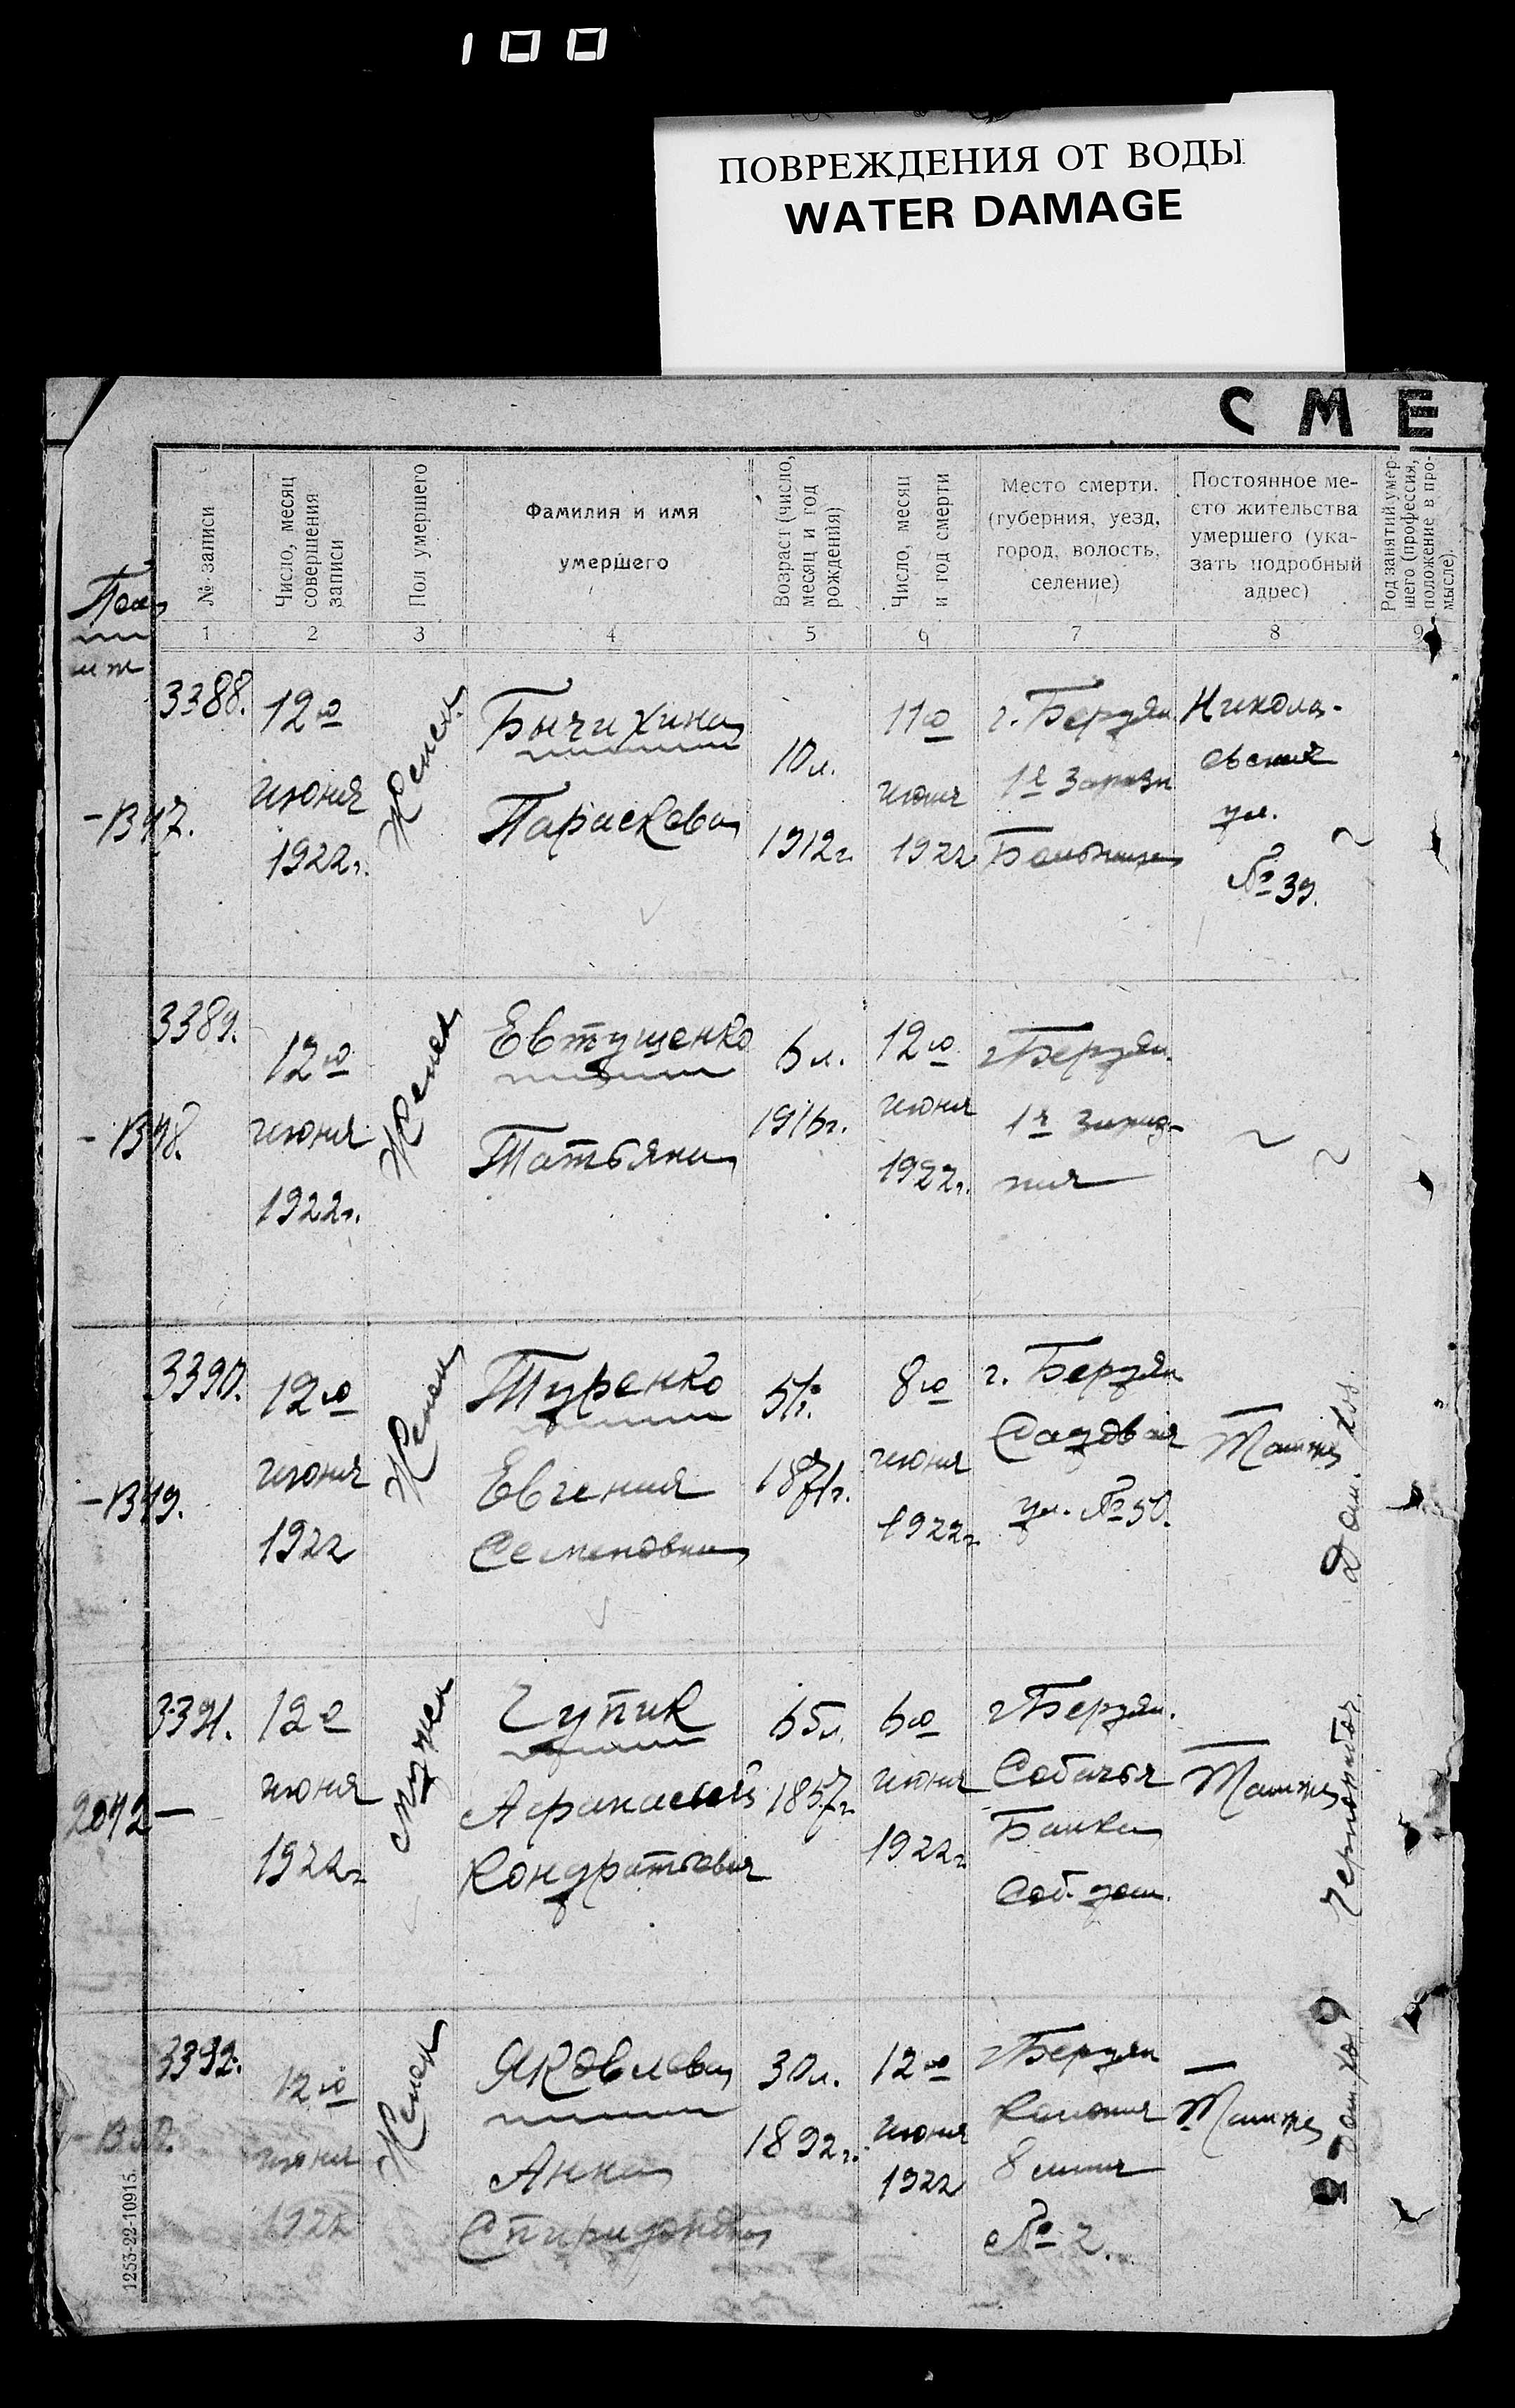 100
ПОВРЕЖДЕНИЯ ОТ ВОДЫ
WATER DAMAGE
СМЕ
№ записи
Число, месяц
совершения
записи
Пол умершего
Фамилия и имя
умершего
Возраст (число,
месяц и год
рождения)
Число, месяц
и год смерти
Место смерти.
(губерния, уезд,
город, волость,
селение)
Постоянное ме-
сто жительства
умершего (ука-
зать подробный
адрес)
Род занятий умер-
шего (профессия,
положение в про-
мысле).
1 2 3 4 5 6 7 8 9
3388.
12го
июня
1922г.
Женск.
Бычихина
Параскева
10л.
1912г.
11го
июня
1922
г. Бердян
1я Заразн
Больница
Никола-
евская
ул.
№ 39.
3389.
12го
июня
1922г.
Женск
Евтушенко
Татьяна
6л.
1916г.
12го
июня
1922г.
г Бердян.
1я Зараз-
ная
3390.
12го
июня
1922
Женск
Туренко
Евгения
Семеновна
51г.
1871г.
8го
июня
1922г
г. Бердян
Садовая
ул. №50.
Там же
Дом. хоз.
3391.
12го
июня
1922г
мужск
Чупик
Афанасий
Кондратьевич
65л.
1857г.
6го
июня
1922г
г Бердян.
Собачья
Балка
Соб. дом.
Там же
Чернораб.
2042 —
3392.
12го
июня
1922
Женск
Яковлева
Анна
Спиридонов
30л.
1892г.
12го
июня
1922
г Бердян
Колония
8 линия
№ 2.
Там же
1253-22-10915.